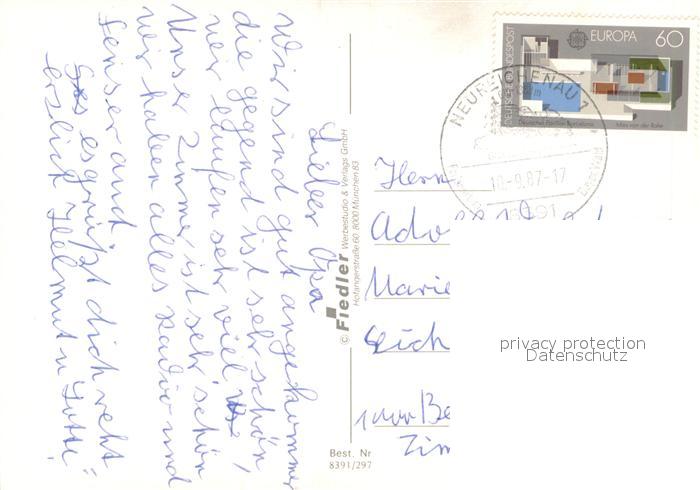 Lieber Opa
Wir sind gut angekommen
die gegend ist sehr schön,
wir laufen sehr viel
Unser Zimmer ist sehr schön
wir haben alles Radio und
Fenser and.
es grüßt dich recht
erzlich Hellmut u Jutta
© Fiedler Werbestudio & Verlags GmbH
Hofangerstraße 60 8000 München 83
Best. Nr
8391/297
DEUTSCHE BUNDESPOST
EUROPA 60
Deutscher Pavillon Barcelona Mies van der Rohe
NEUREICHENAU
10.-9.87-17
8391
Herrn
Ado
Marie
Zim
privacy protection
Datenschutz